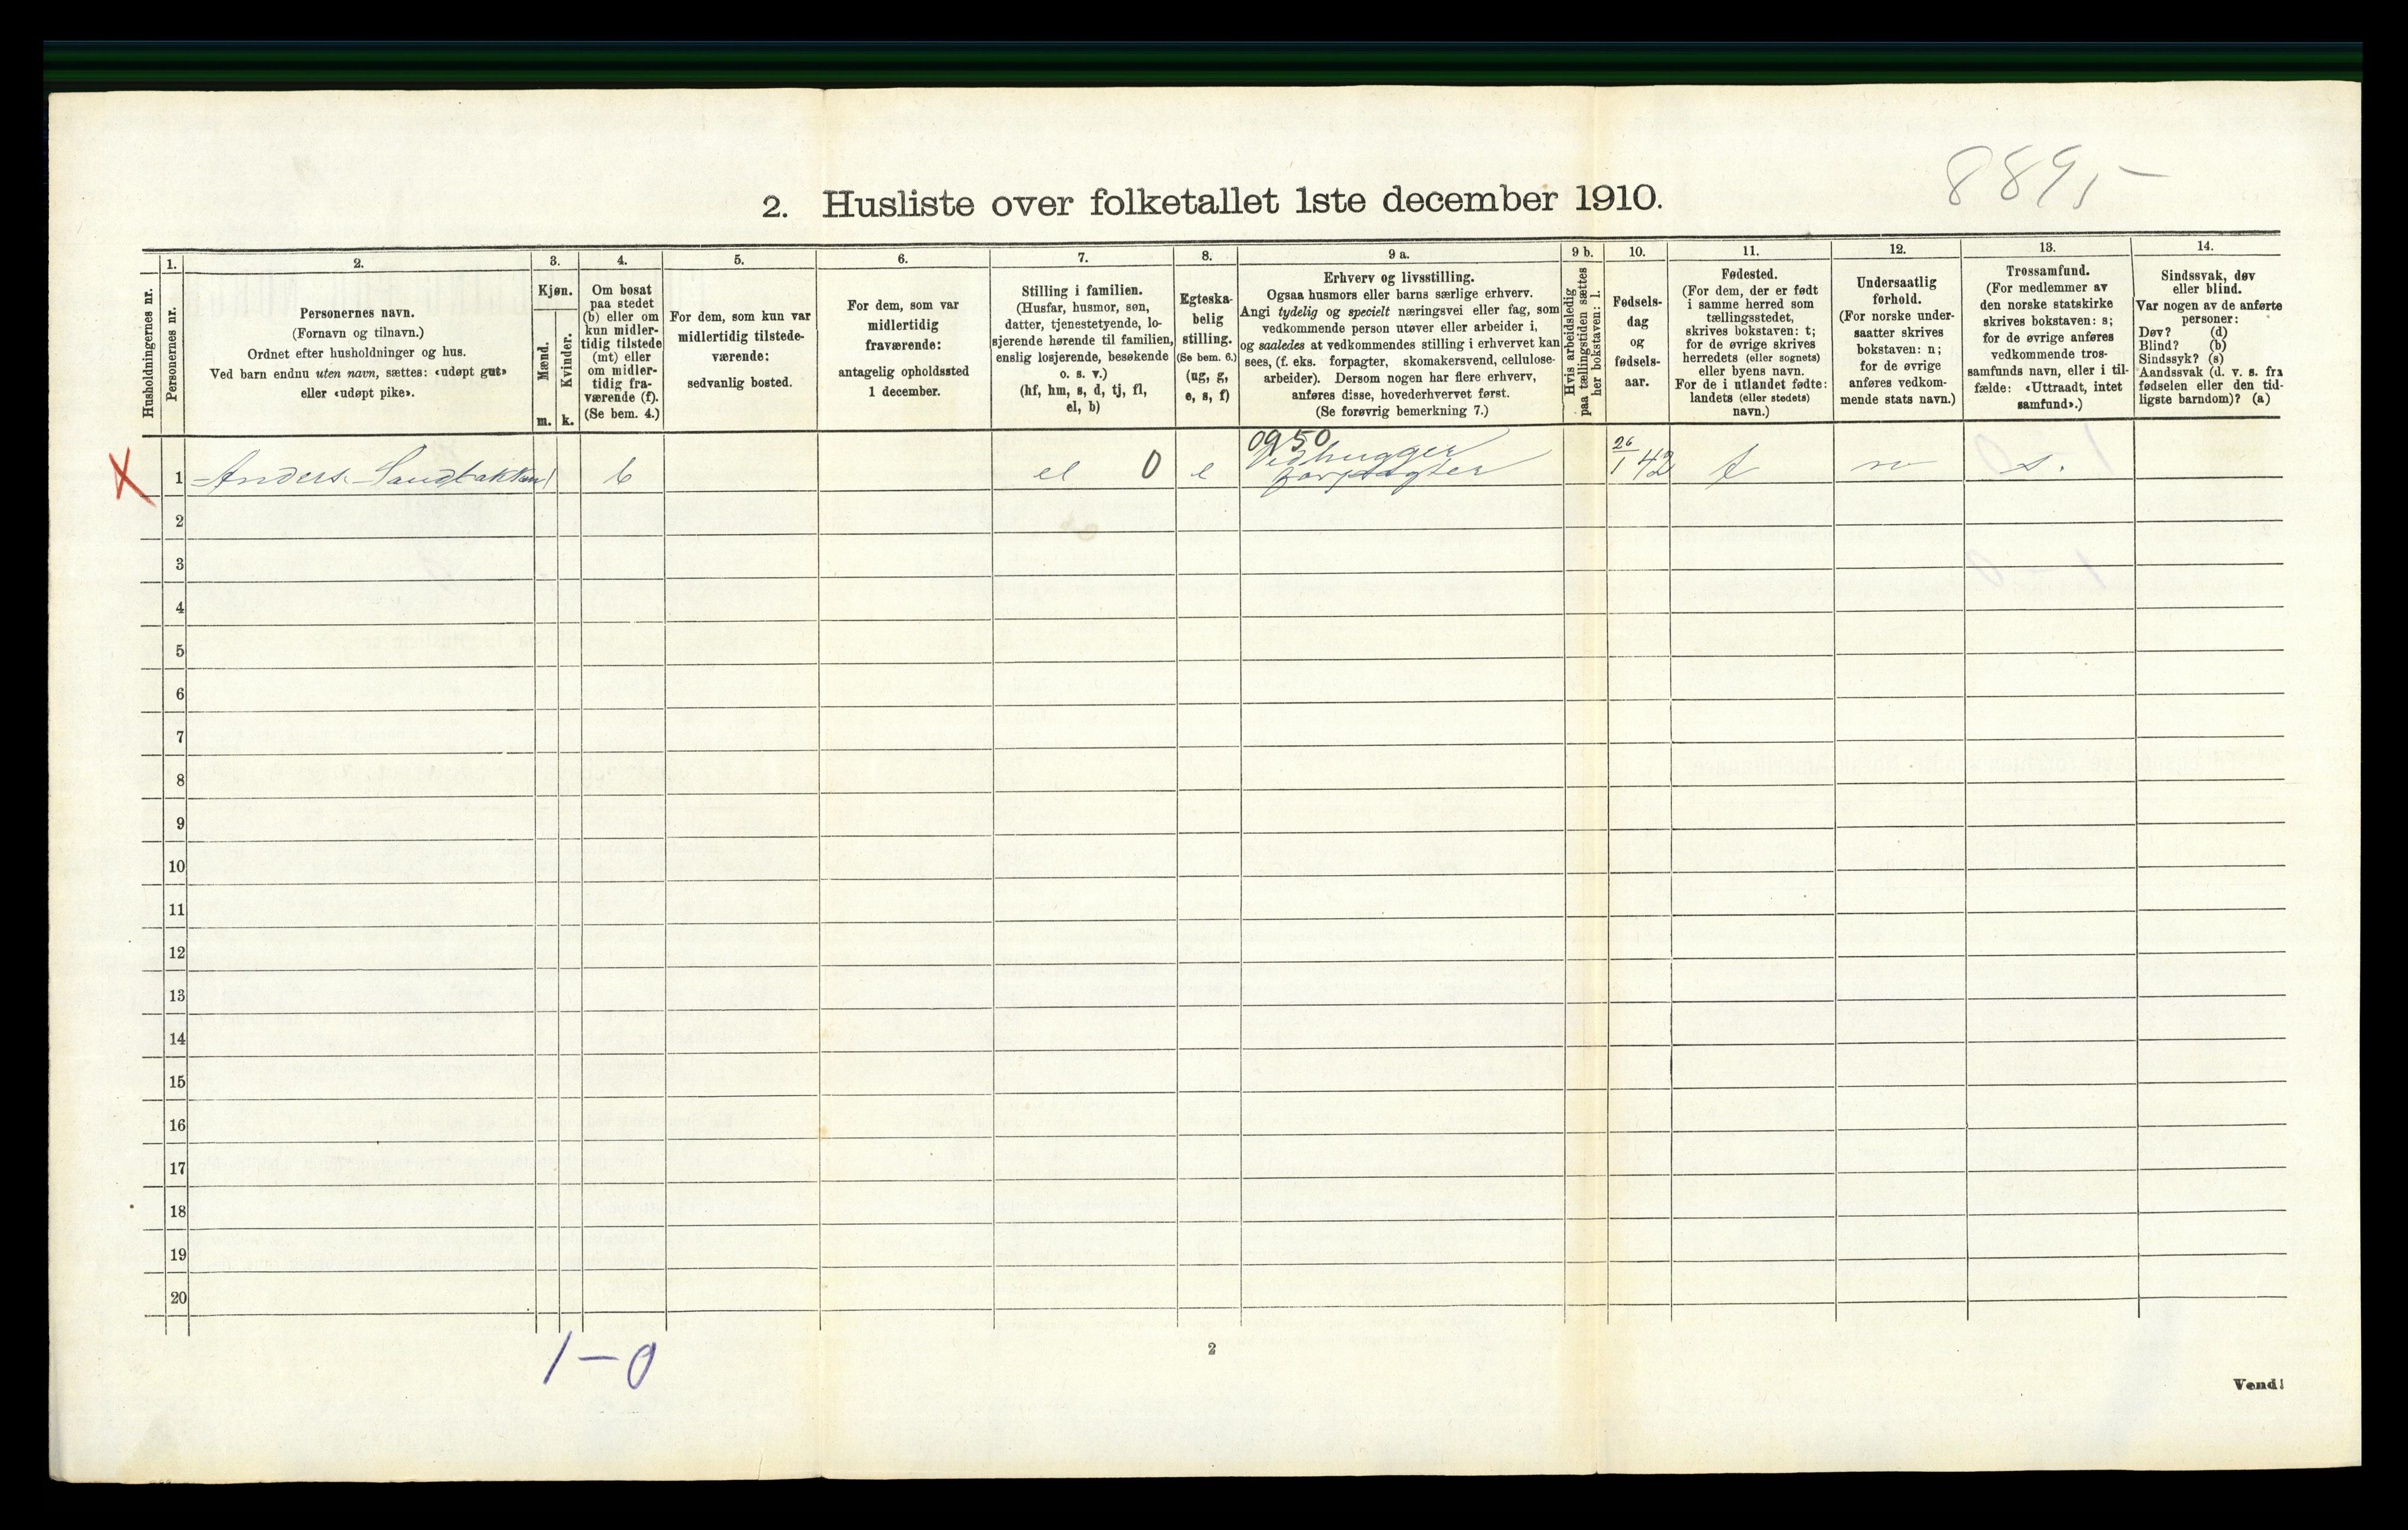 8895-
2. Husliste over folketallet 1ste december 1910.
Husholdningernes nr.
1.
Personernes nr.
2.
Personernes navn.
(Fornavn og tilnavn.)
Ordnet efter husholdninger og hus.
Ved barn endnu uten navn, sættes: «udøpt gut»
eller «udøpt pike».
3.
Kjøn.
Mænd.
m.
Kvinder.
k.
4.
Om bosat
paa stedet
(b) eller om
kun midler-
tidig tilstede
(mt) eller
om midler-
tidig fra-
værende (f).
(Se bem. 4.)
5.
For dem, som kun var
midlertidig tilstede-
værende:
sedvanlig bosted.
6.
For dem, som var
midlertidig
fraværende:
antagelig opholdssted
1 december.
7.
Stilling i familien.
(Husfar, husmor, søn,
datter, tjenestetyende, lo-
sjerende hørende til familien,
enslig losjerende, besøkende
o. s. v.)
(hf, hm, s, d, tj, fl,
el, b)
8.
Egteska-
belig
stilling.
(Se bem. 6.)
(ug, g,
e, s, f)
9 a.
Erhverv og livsstilling.
Ogsaa husmors eller barns særlige erhverv.
Angi tydelig og specielt næringsvei eller fag, som
vedkommende person utøver eller arbeider i,
og saaledes at vedkommendes stilling i erhvervet kan
sees, (f. eks. forpagter, skomakersvend, cellulose-
arbeider). Dersom nogen har flere erhverv,
anføres disse, hovederhvervet først.
(Se forøvrig bemerkning 7.)
9 b.
Hvis arbeidsledig
paa tællingstiden sættes
her bokstaven: l.
10.
Fødsels-
dag
og
fødsels-
aar.
11.
Fødested.
(For dem, der er født
i samme herred som
tællingsstedet,
skrives bokstaven: t;
for de øvrige skrives
herredets (eller sognets)
eller byens navn.
For de i utlandet fødte:
landets (eller stedets)
navn.)
12.
Undersaatlig
forhold.
(For norske under-
saatter skrives
bokstaven: n;
for de øvrige
anføres vedkom-
mende stats navn.)
13.
Trossamfund.
(For medlemmer av
den norske statskirke
skrives bokstaven: s;
for de øvrige anføres
vedkommende tros-
samfunds navn, eller i til-
fælde: «Uttraadt, intet
samfund».)
14.
Sindssvak, døv
eller blind.
Var nogen av de anførte
personer:
Døv? (d)
Blind? (b)
Sindssyk? (s)
Aandssvak (d. v. s. fra
fødselen eller den tid-
ligste barndom)? (a)
X 1 Anders Sandbakken 1 b el 0 e 0950 Vedhugger 26/1 42 t n s.
forpagter
2
3
4
5
6
7
8
9
10
11
12
13
14
15
16
17
18
19
20
1-0
2
Vend!